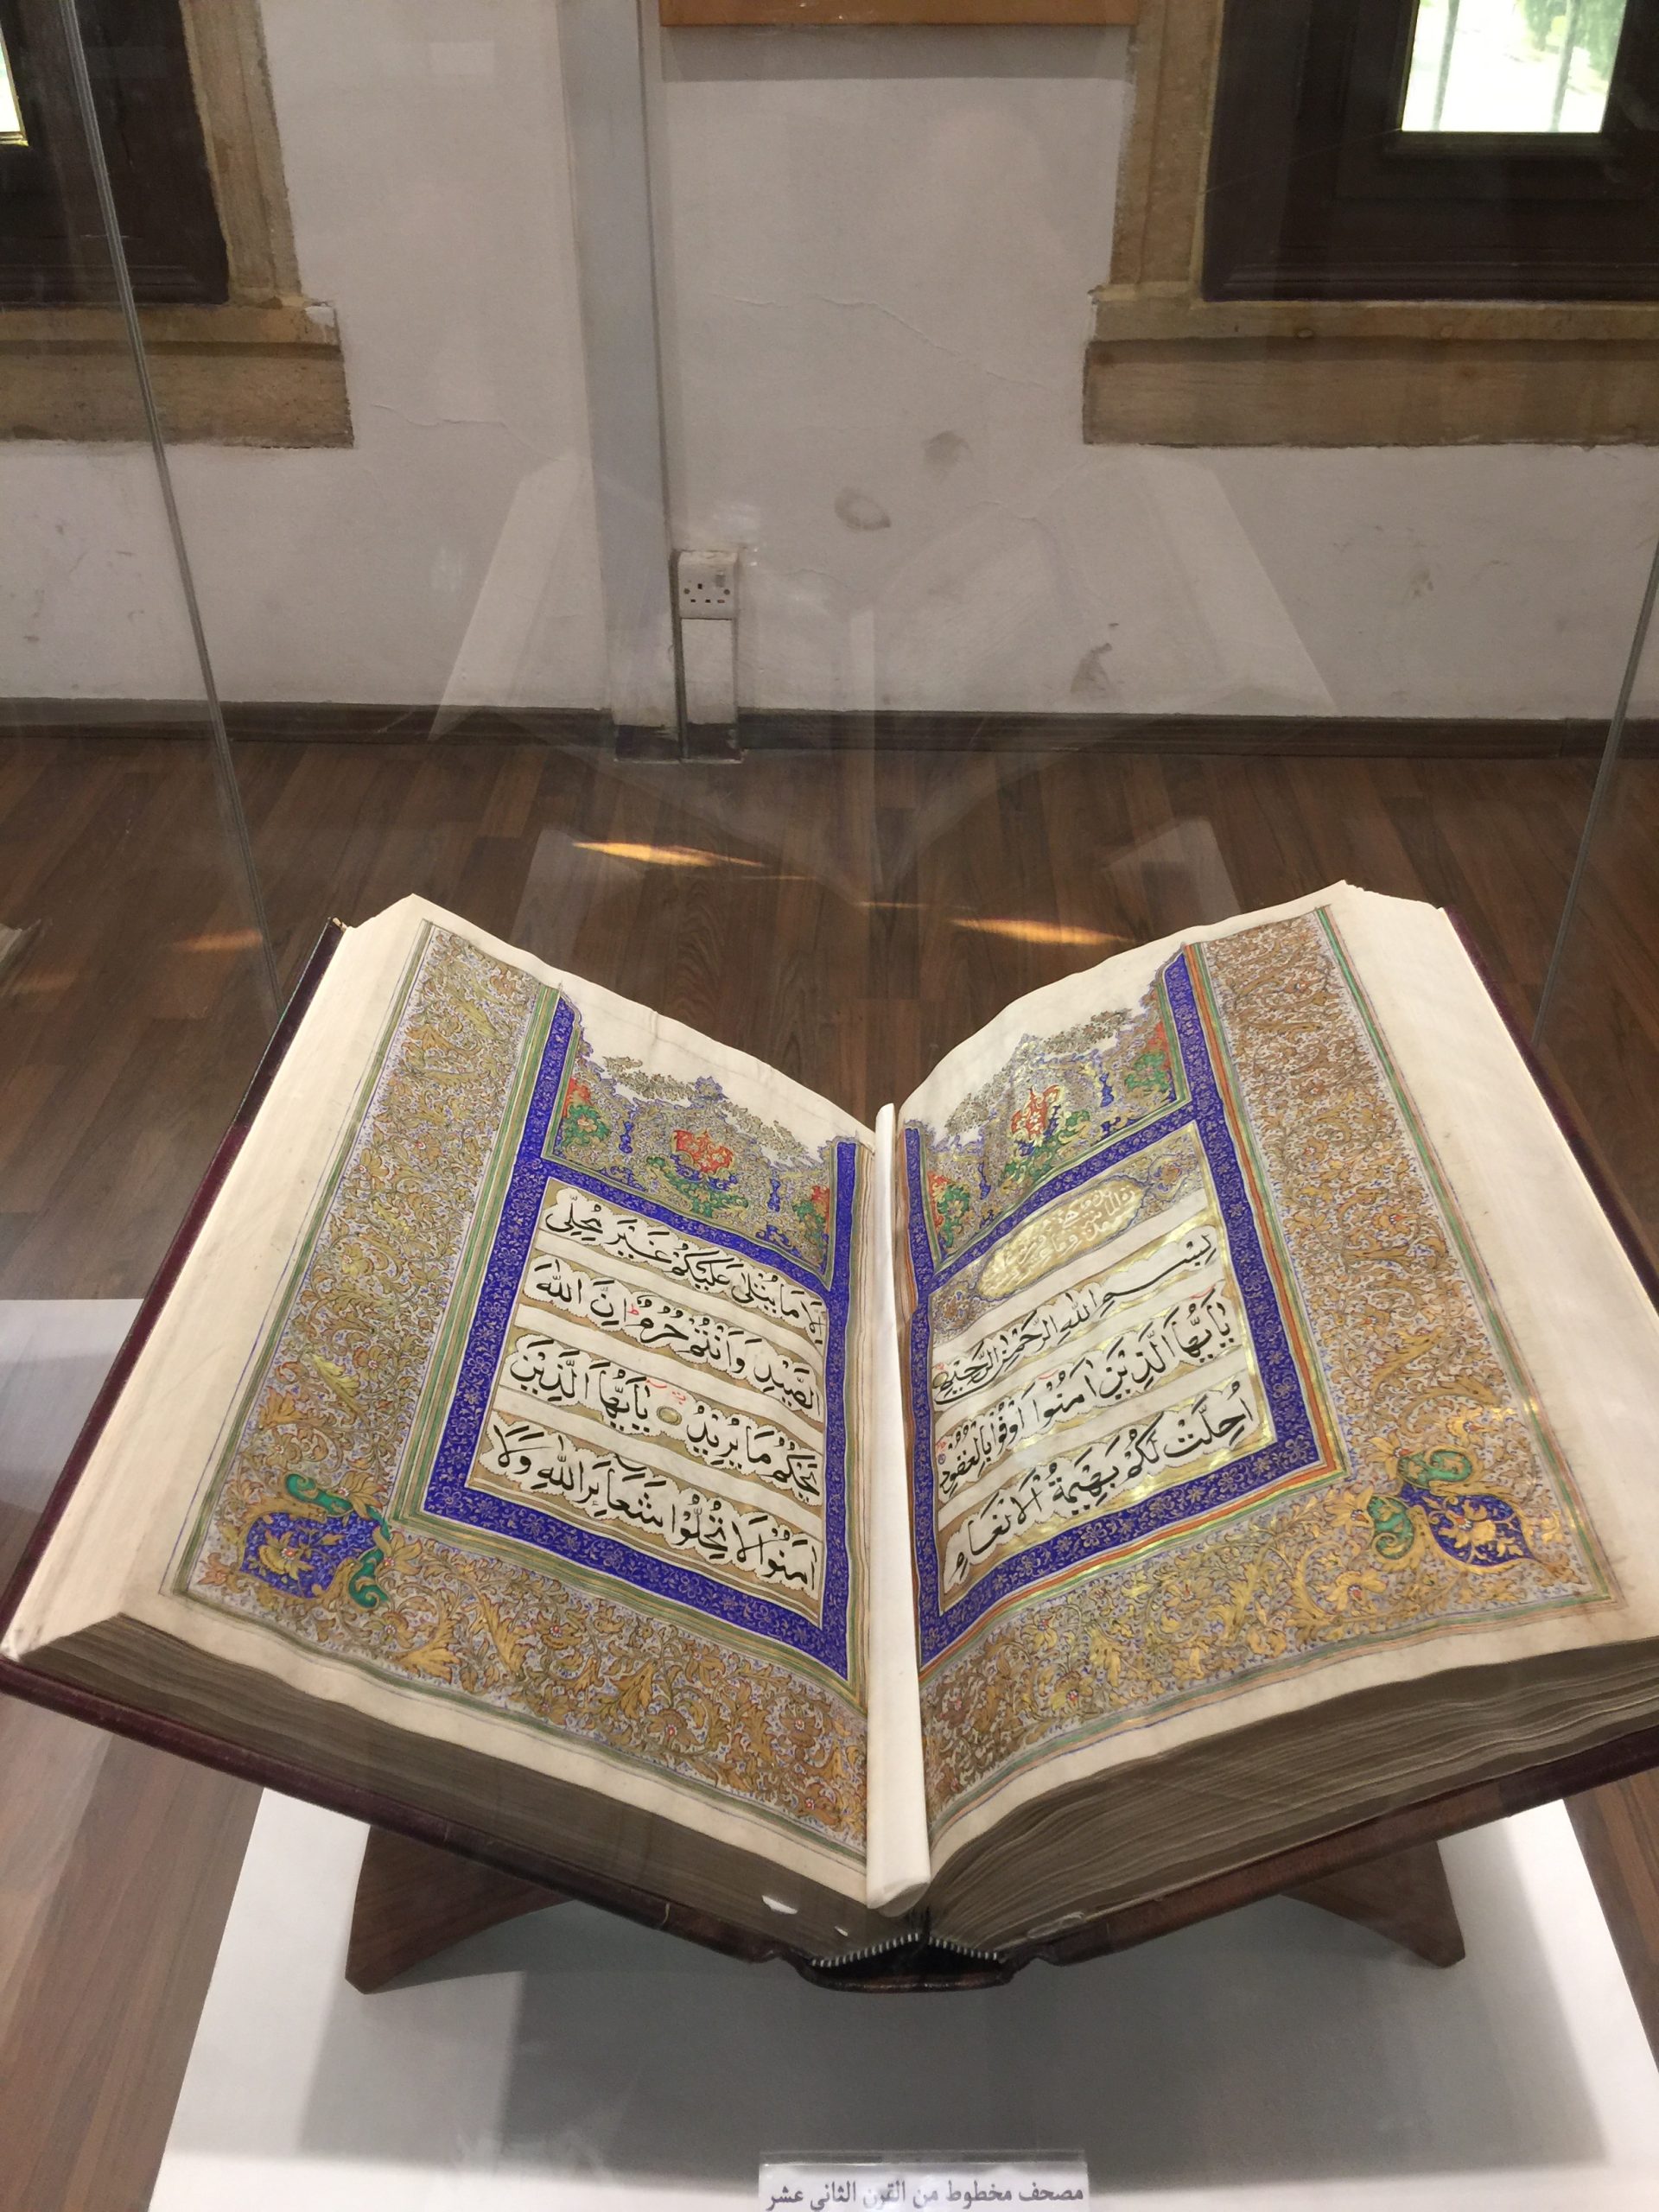 بِسْمِ اللهِ الرَّحْمٰنِ الرَّحِيْمِ
يٰٓاَيُّهَا الَّذِيْنَ اٰمَنُوْٓا اَوْفُوْا بِالْعُقُوْدِ
اُحِلَّتْ لَكُمْ بَهِيْمَةُ الْاَنْعَامِ
اِلَّا مَا يُتْلٰى عَلَيْكُمْ غَيْرَ مُحِلِّى
الصَّيْدِ وَاَنْتُمْ حُرُمٌ ط اِنَّ اللهَ
يَحْكُمُ مَا يُرِيْدُ يٰٓاَيُّهَا الَّذِيْنَ
اٰمَنُوْا لَا تُحِلُّوْا شَعَآئِرَ اللهِ وَلَا
مصحف مخطوط من القرن الثاني عشر